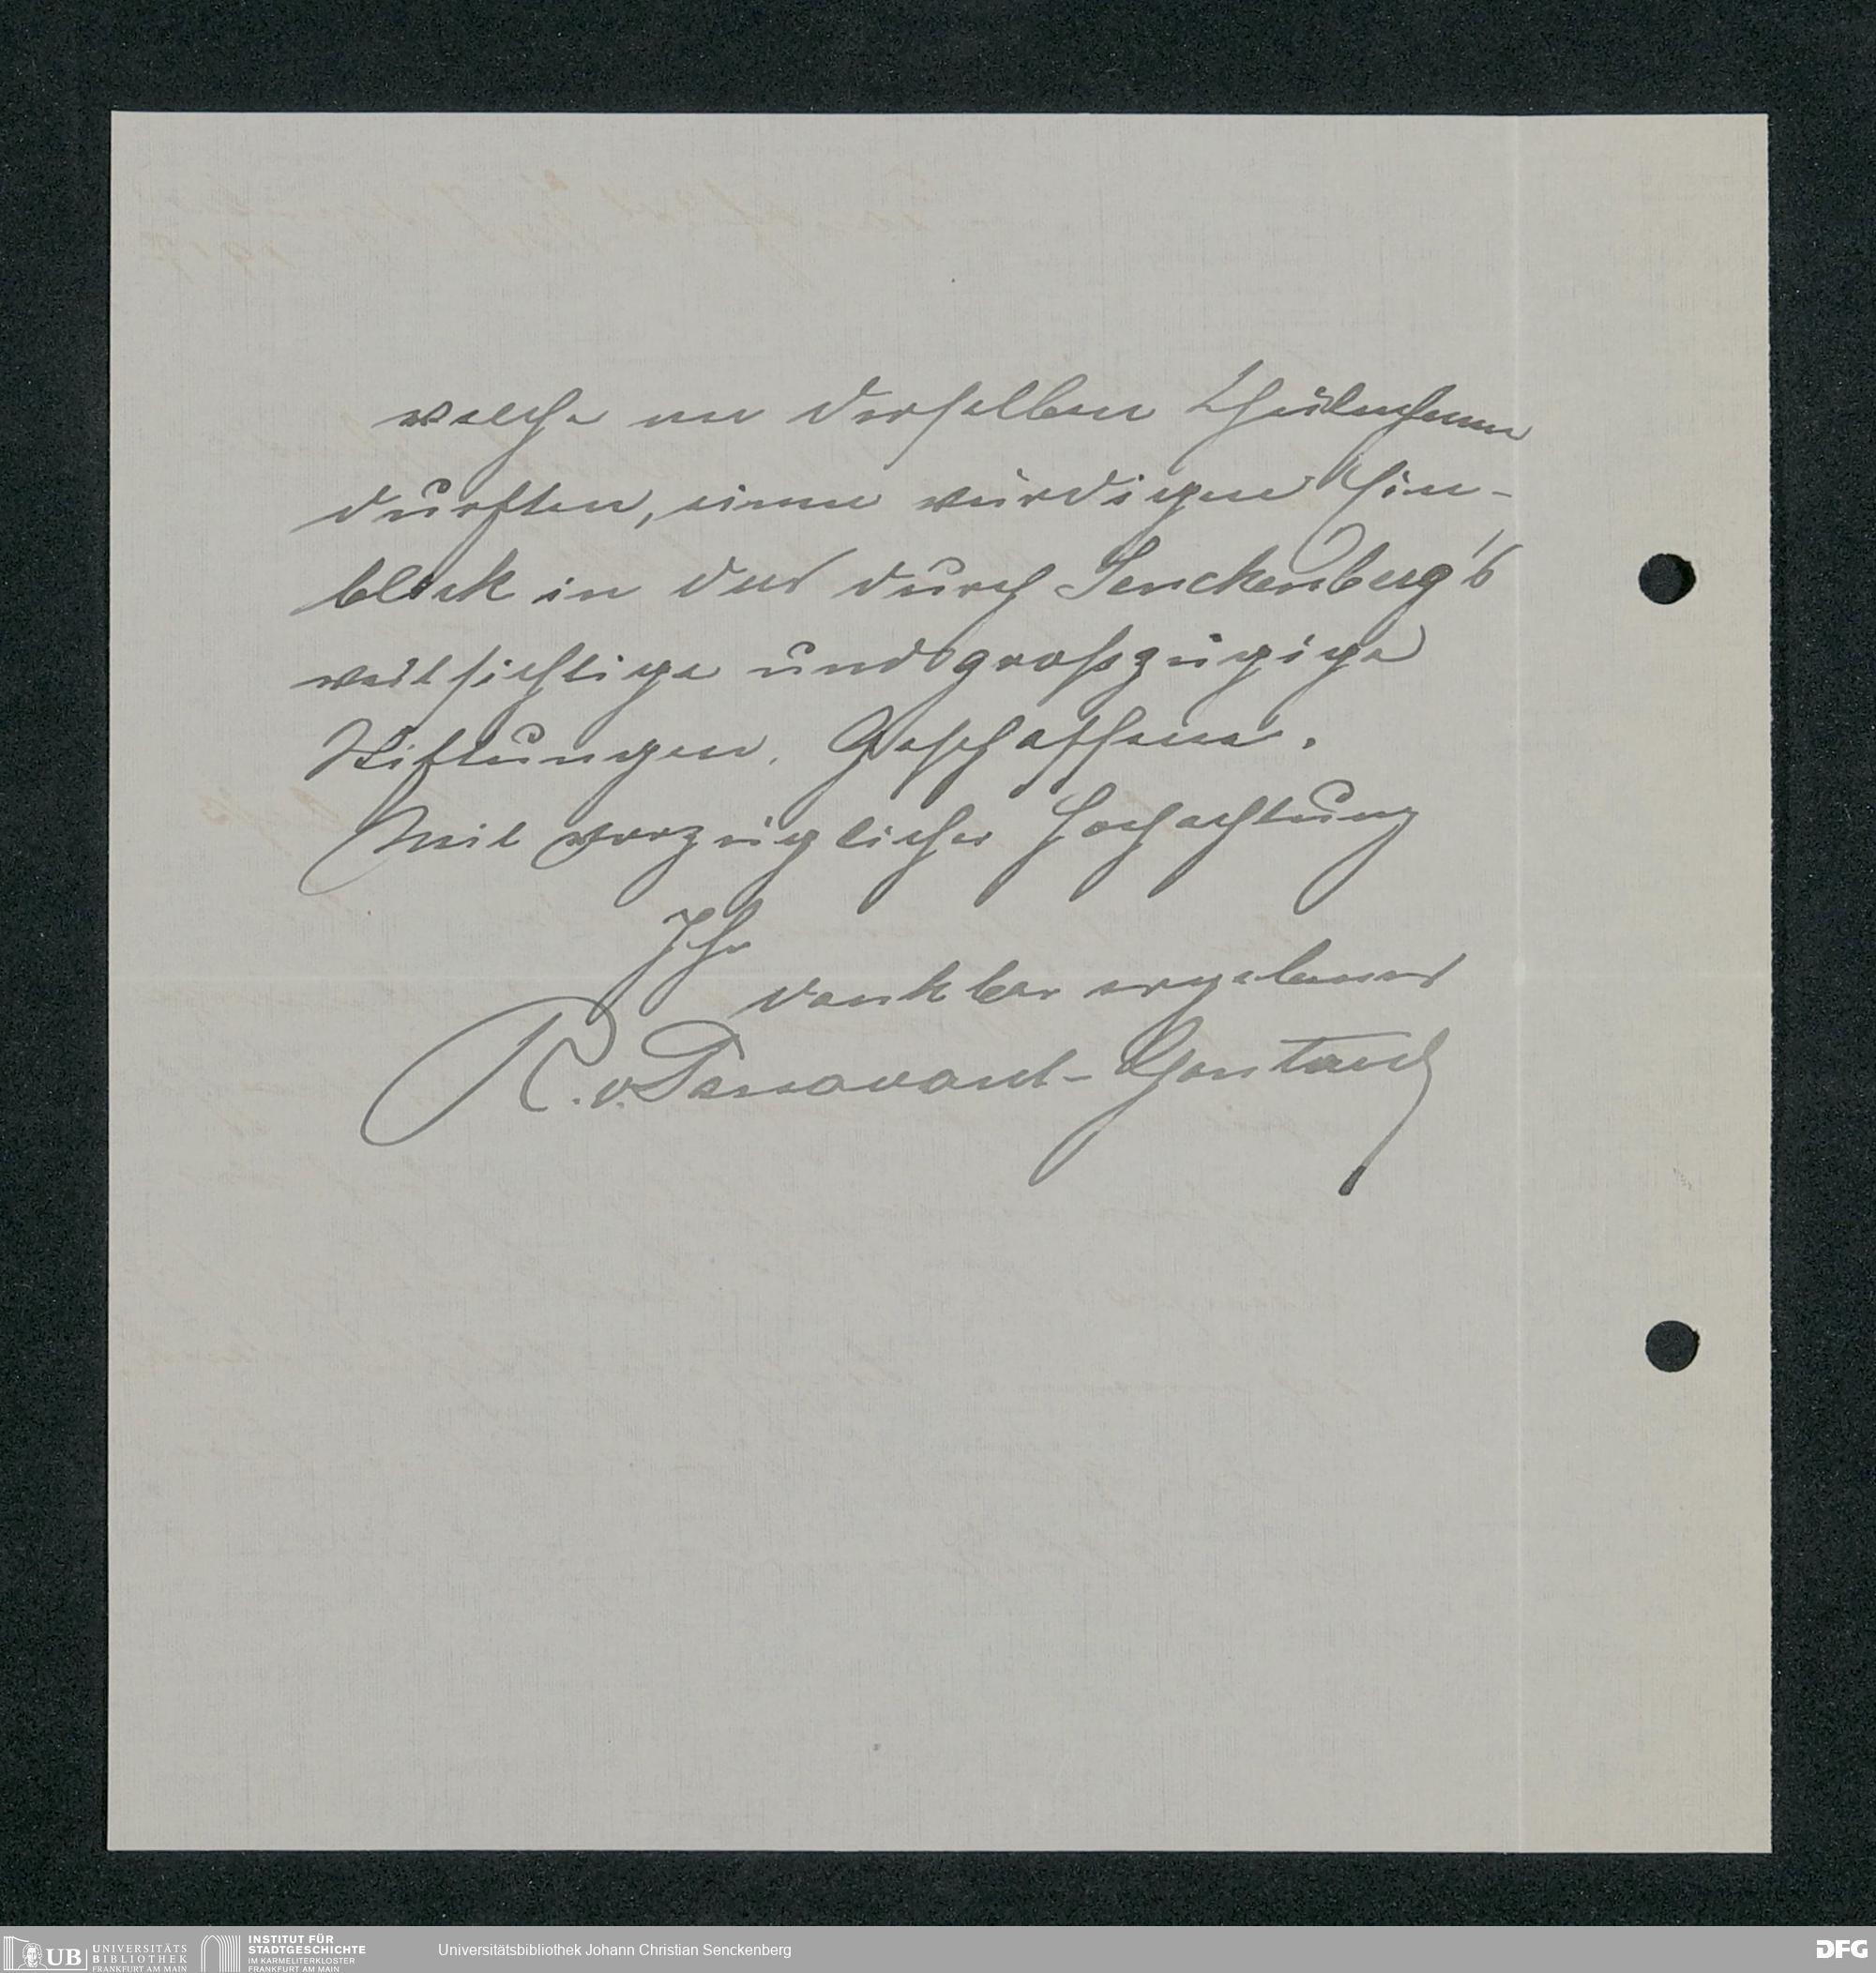 welche an derselben theilnehmen
durften, einen würdigen Hin-
blick in das durch Senckenberg's
weitsichtige und großzügige
Stiftungen, Geschaffene.
Mit vorzüglicher Hochachtung
Ihr
dankbar ergebener
R. v. Passavant-Gontard
UB UNIVERSITÄTS
BIBLIOTHEK
FRANKFURT AM MAIN
INSTITUT FÜR
STADTGESCHICHTE
IM KARMELITERKLOSTER
FRANKFURT AM MAIN
Universitätsbibliothek Johann Christian Senckenberg
DFG